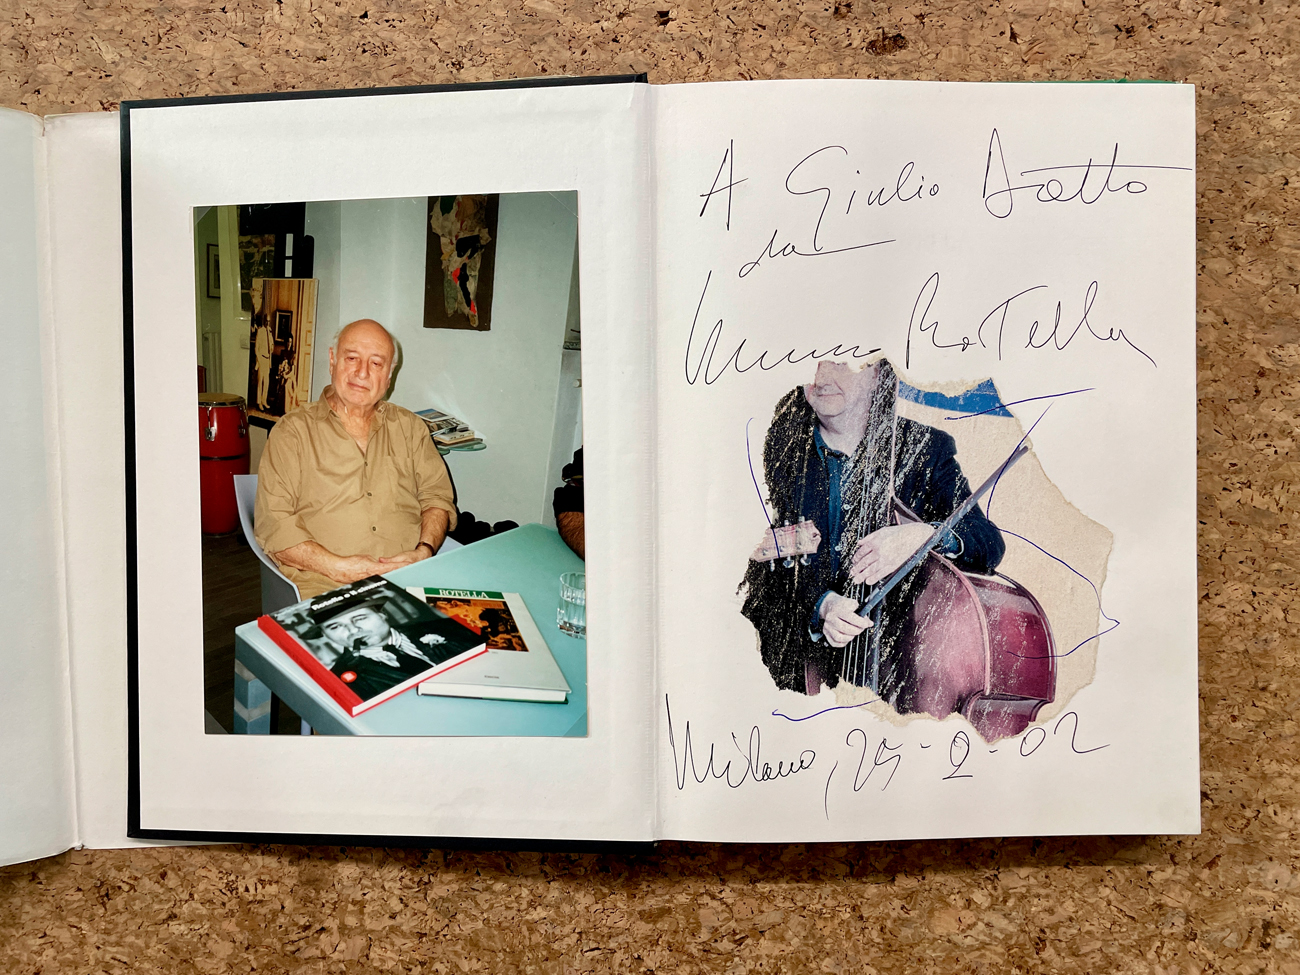 ROTELLA
A Giulio
da
Rotella
Milano, 25-2-02